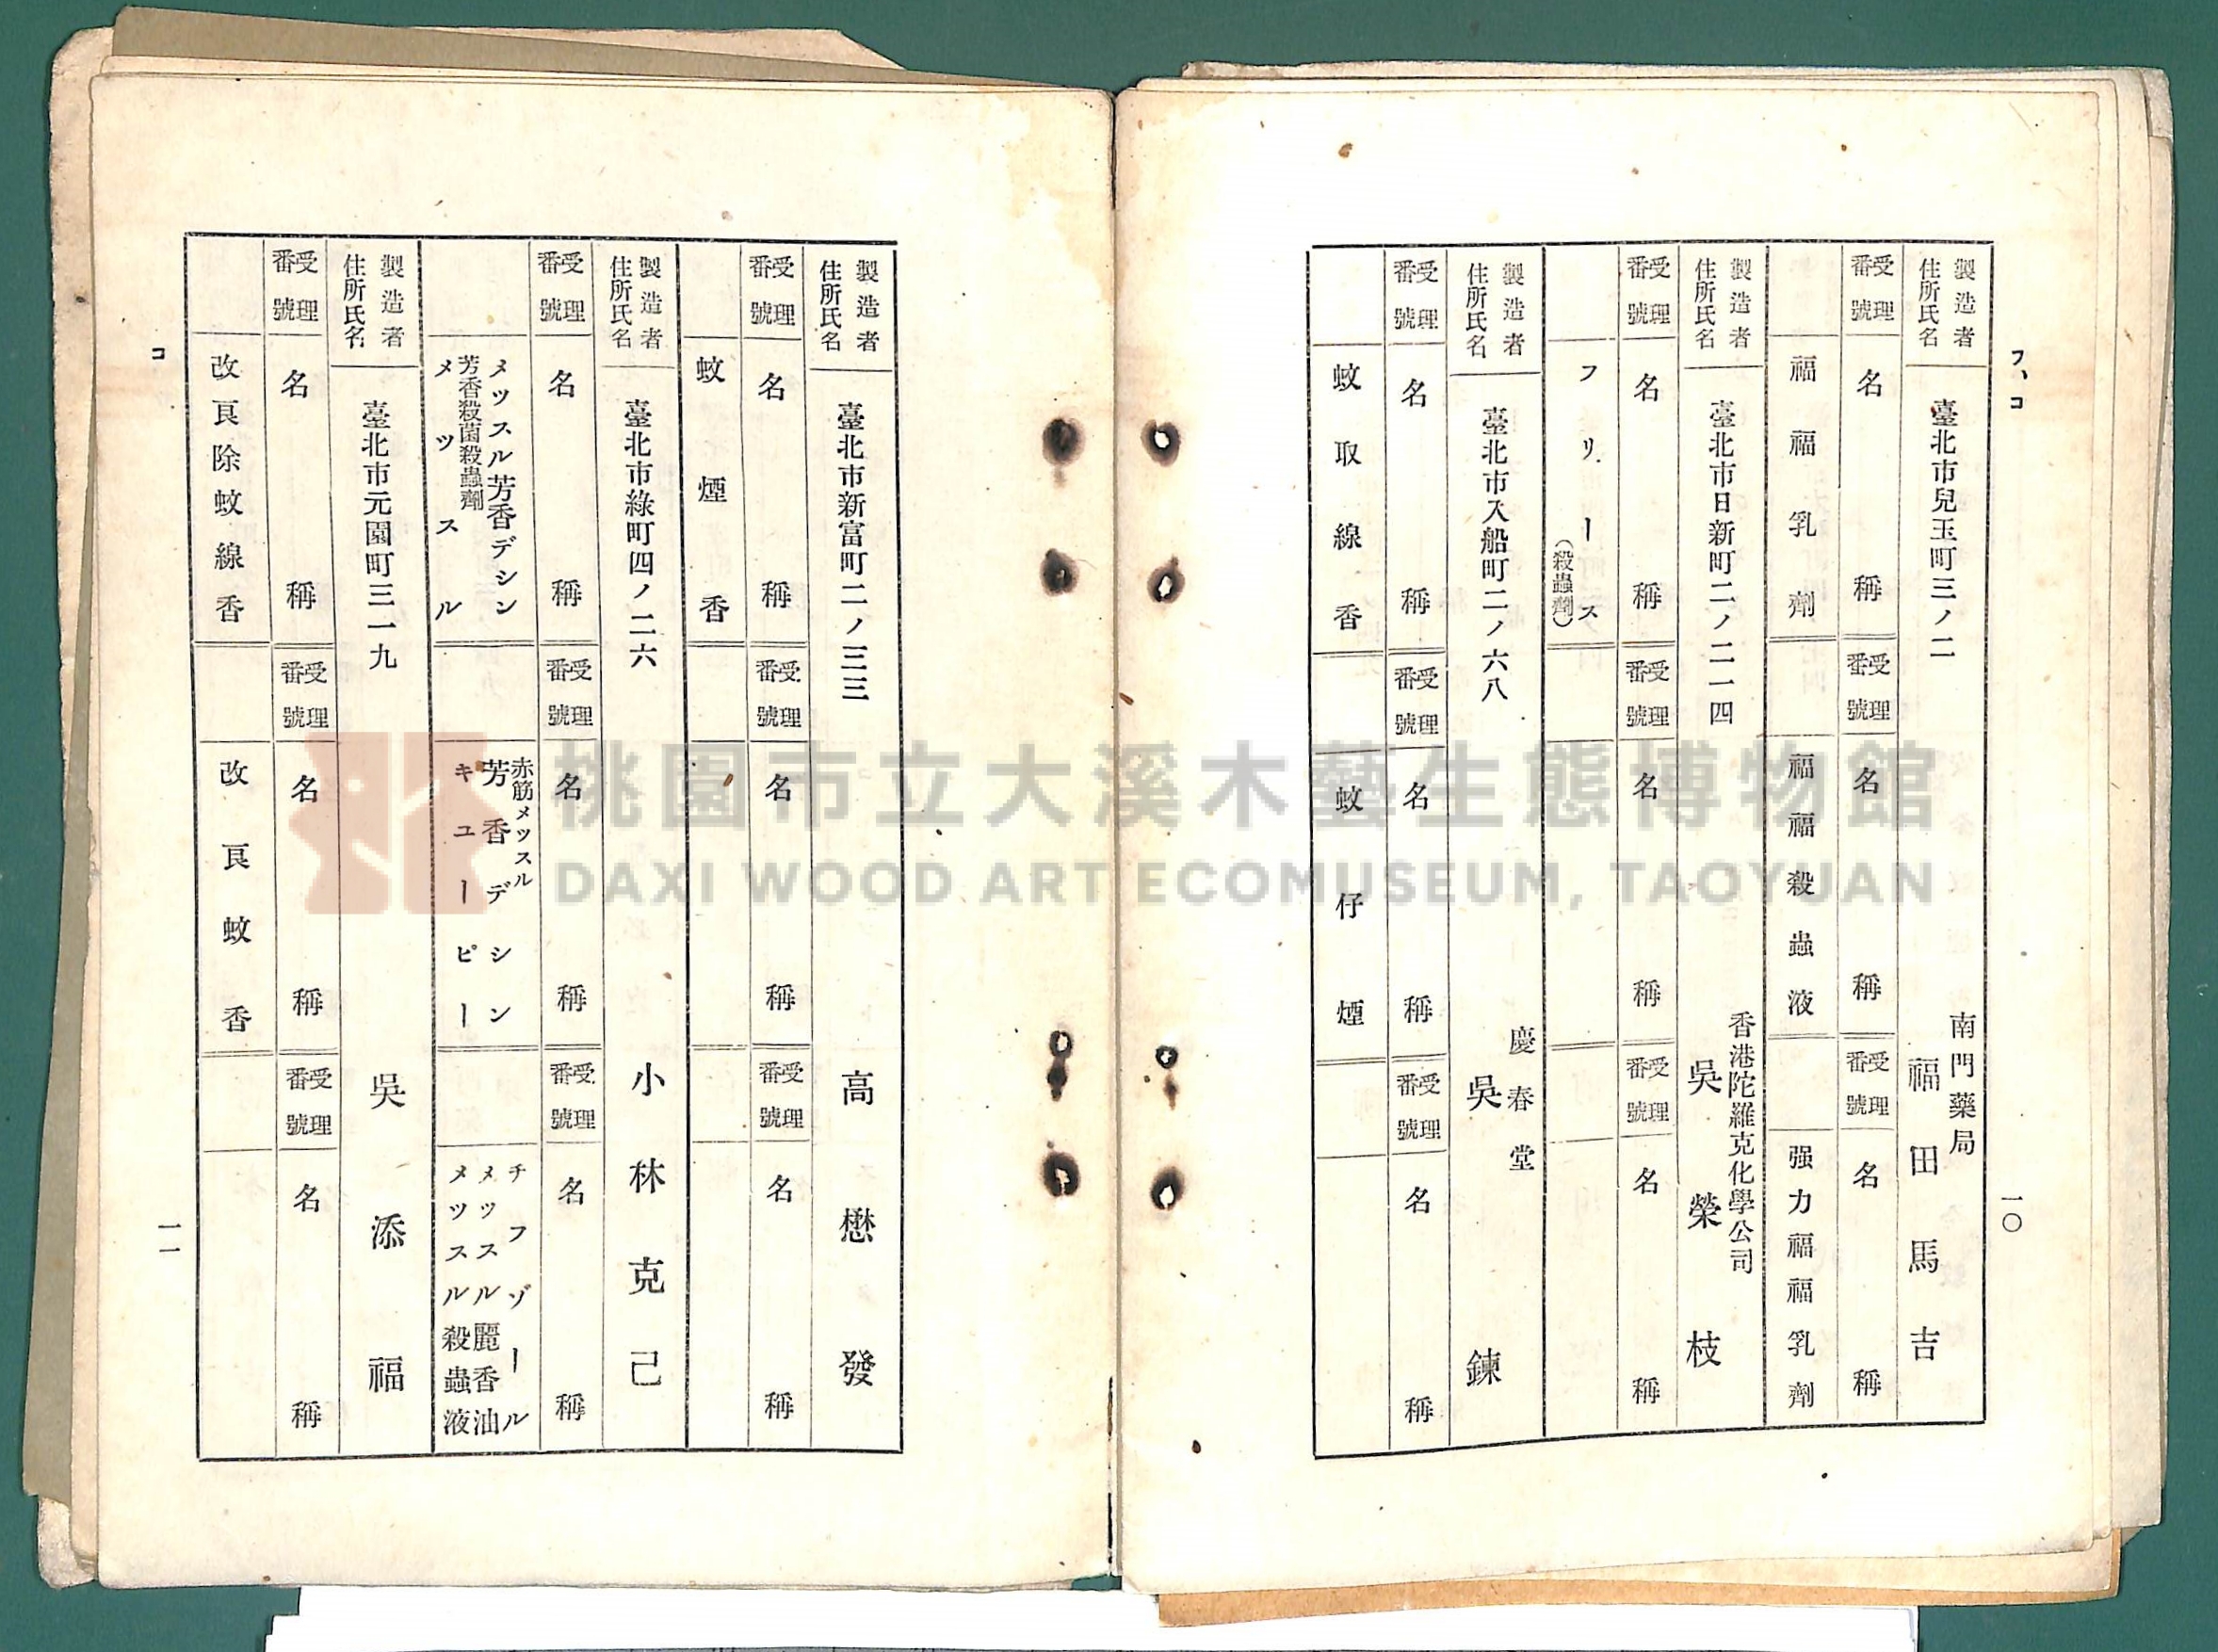 フ、コ
一〇
製造者
住所氏名
臺北市兒玉町三ノ二
南門藥局
福田馬吉
受理番號
名稱
受理番號
名稱
受理番號
名稱
福福乳劑
福福殺蟲液
强力福福乳劑
製造者
住所氏名
臺北市日新町二ノ二一四
香港陀羅克化學公司
吳榮枝
受理番號
名稱
受理番號
名稱
受理番號
名稱
フリース
(殺蟲劑)
製造者
住所氏名
臺北市入船町二ノ六八
慶春堂
吳鍊
受理番號
名稱
受理番號
名稱
受理番號
名稱
蚊取線香
蚊仔煙
製造者
住所氏名
臺北市新富町二ノ三三
高懋發
受理番號
名稱
受理番號
名稱
受理番號
名稱
蚊煙香
製造者
住所氏名
臺北市綠町四ノ二六
小林克己
受理番號
名稱
受理番號
名稱
受理番號
名稱
メツスル芳香デシン
芳香殺菌殺蟲劑
メツスル
赤筋メツスル
芳香デシン
キユーピー
チフゾール
メツスル麗香油
メツスル殺蟲液
製造者
住所氏名
臺北市元園町三一九
吳添福
受理番號
名稱
受理番號
名稱
受理番號
名稱
改良除蚊線香
改良蚊香
コ
一一
桃園市立大溪木藝生態博物館
DAXI WOOD ART ECOMUSEUM, TAOYUAN